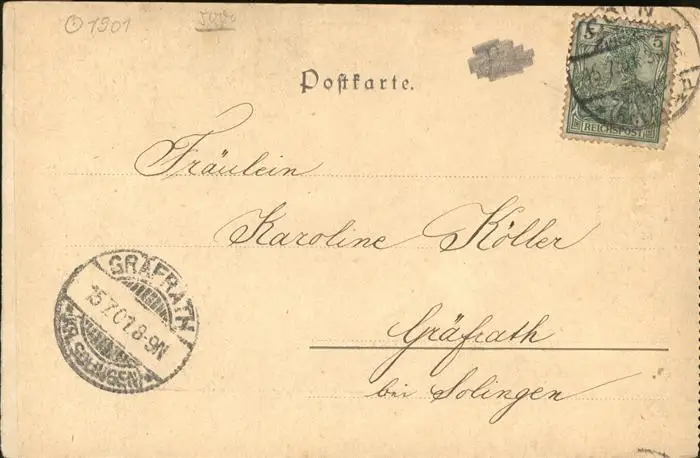 1901
5000
Postkarte.
CÖLN
5 5
REICHSPOST
Fräulein
Karoline Köller
Gräfrath
bei Solingen
GRÄFRATH
15.7.01.8-9N
*(KR. SOLINGEN)*